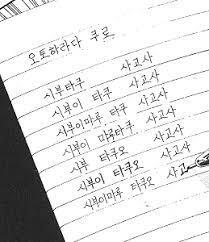 오토하라다 쿠르
시부타쿠 사고사
시부이 타쿠 사고사
시부이마루 타쿠 사고사
시부이 마루타쿠 사고사
시부 타쿠오 사고사
시부이 타쿠오 사고사
시부이마루 타쿠오 사고